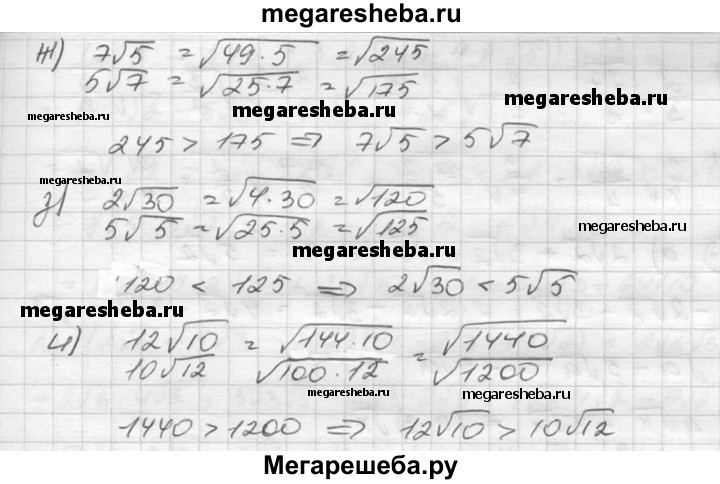 megaresheba.ru
ж) 7√5 = √49·5 = √245
5√7 = √25·7 = √175
megaresheba.ru
megaresheba.ru
megaresheba.ru
245 > 175 ⇒ 7√5 > 5√7
megaresheba.ru
з) 2√30 = √4·30 = √120
5√5 = √25·5 = √125
megaresheba.ru
megaresheba.ru
120 < 125 ⇒ 2√30 < 5√5
megaresheba.ru
и) 12√10 = √144·10 = √1440
10√12 √100·12 √1200
megaresheba.ru
megaresheba.ru
1440 > 1200 ⇒ 12√10 > 10√12
Мегарешеба.ру